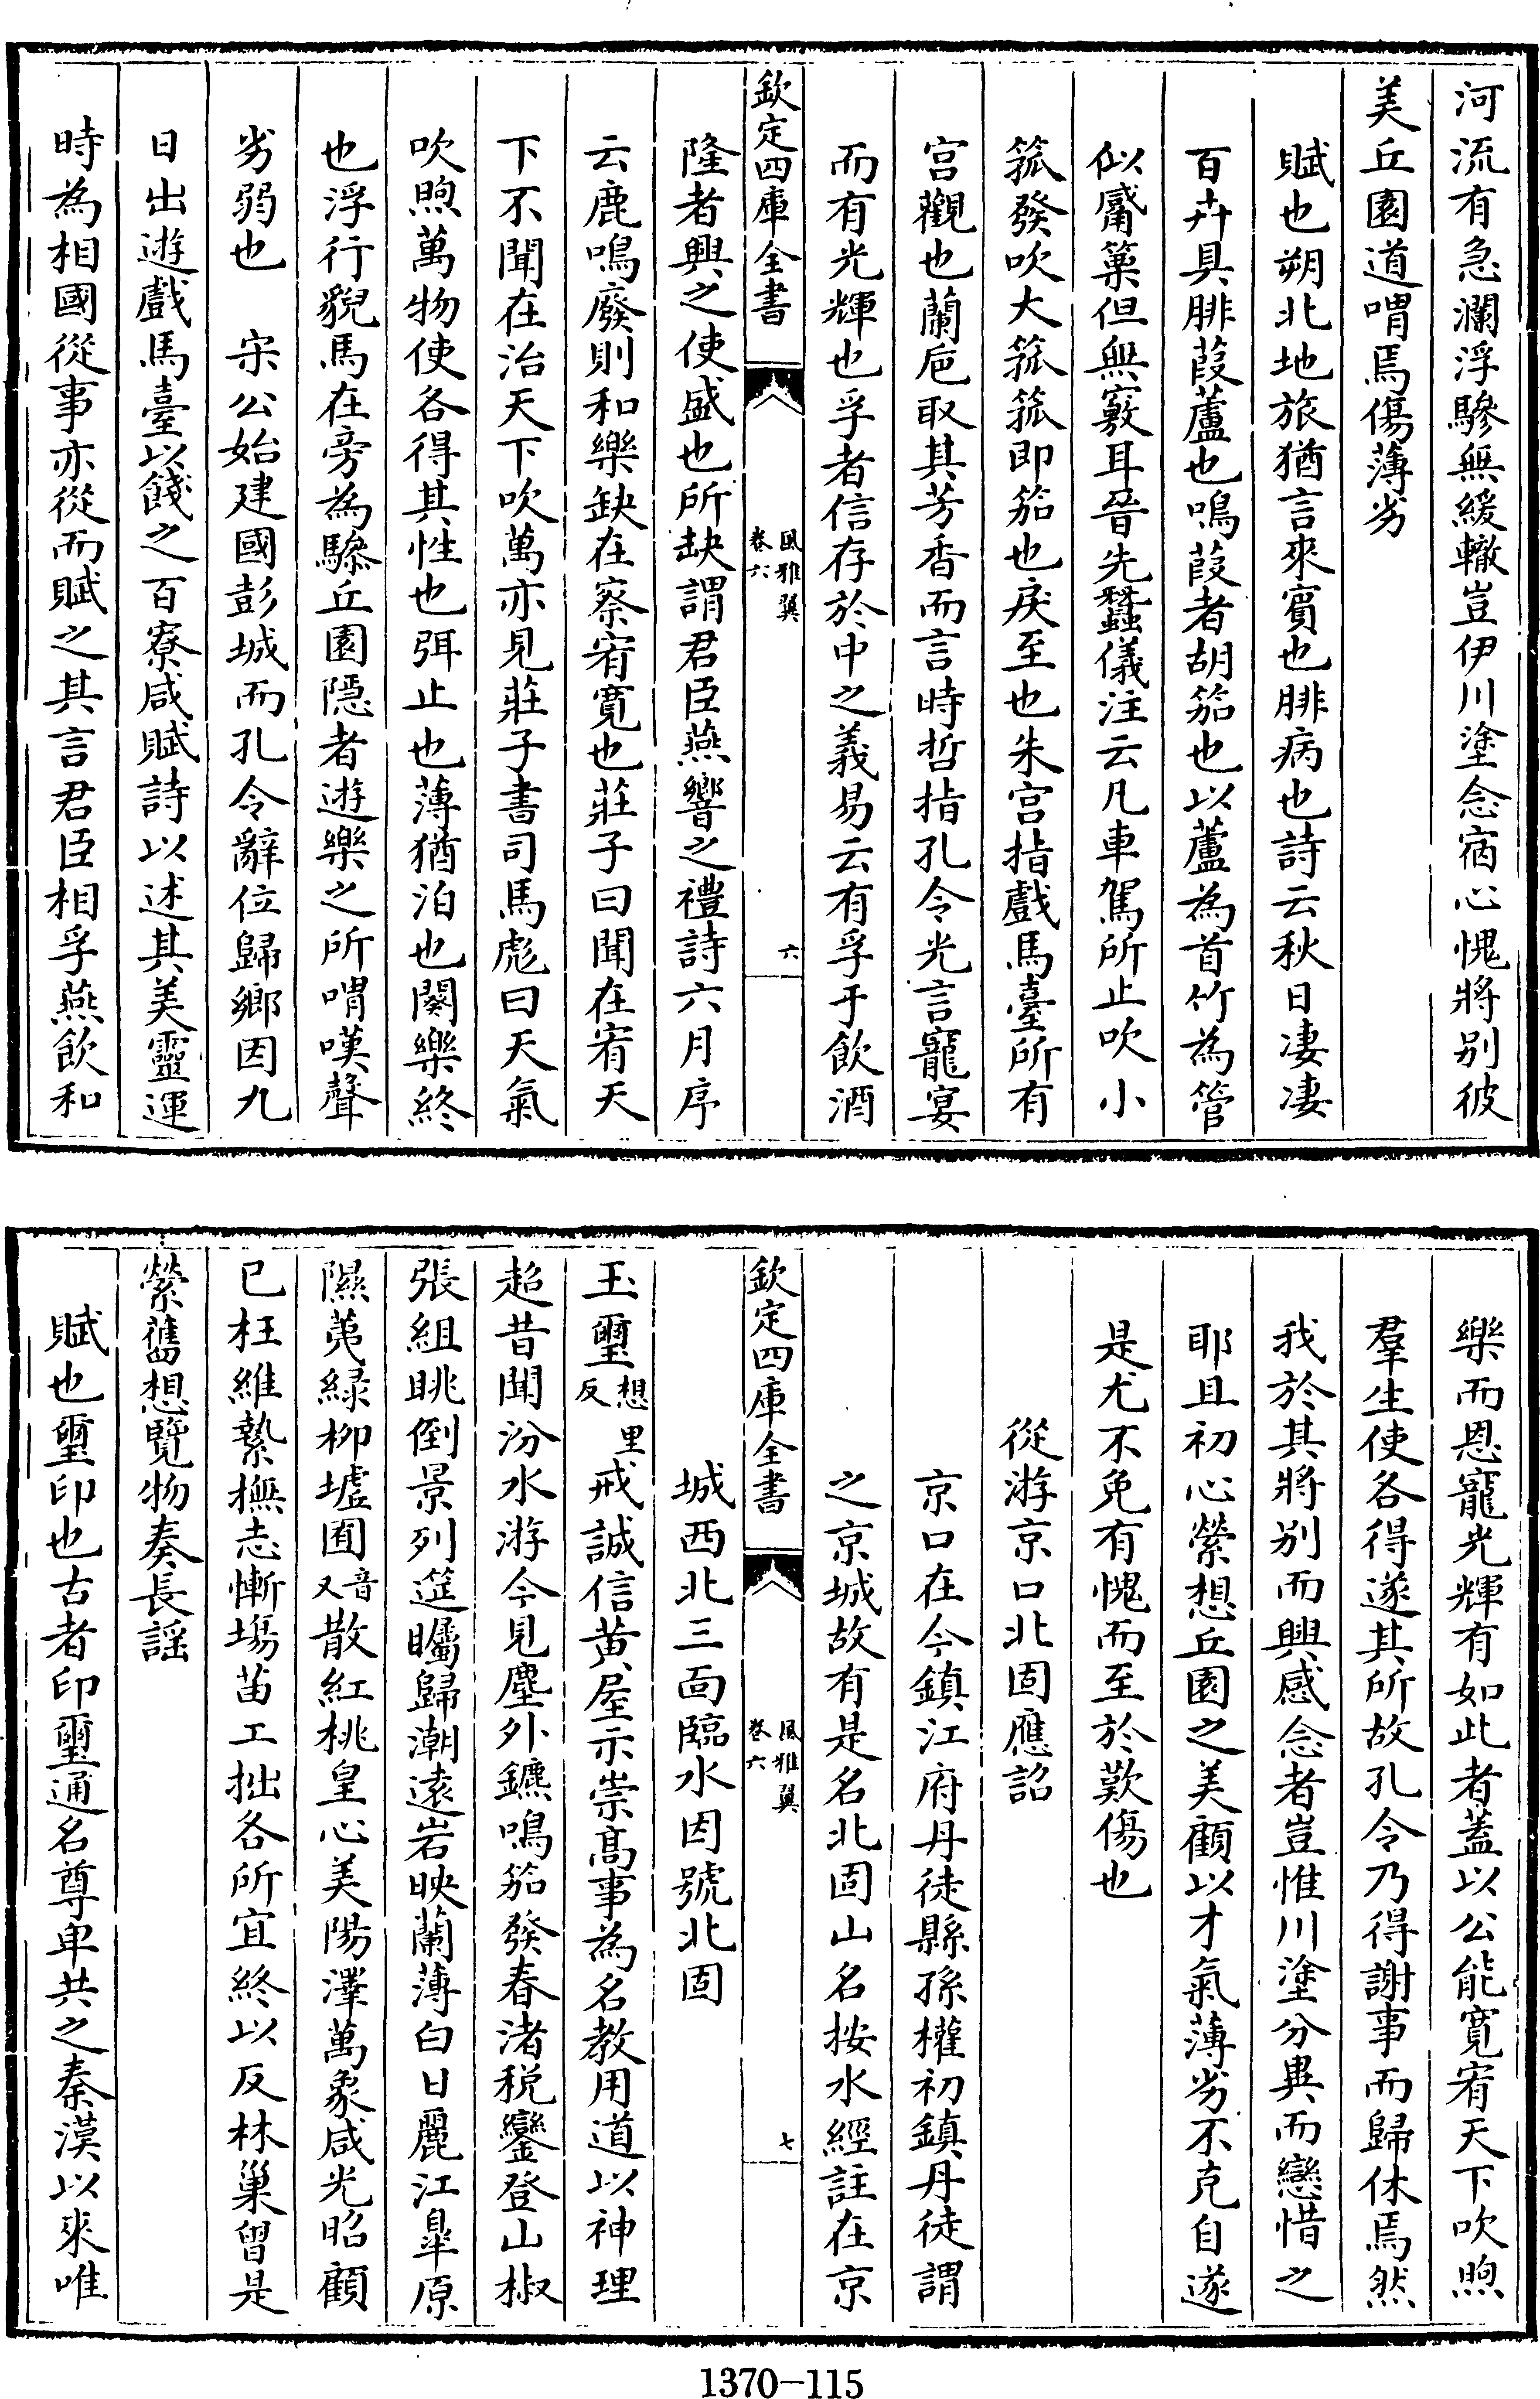 河流有急瀾浮驂無緩轍豈伊川塗念宿心愧將别彼
美丘園道喟焉傷薄劣
賦也朔北地旅猶言來賓也腓病也詩云秋日凄凄
百卉具腓葭蘆也鳴葭者胡笳也以蘆為首竹為管
似觱篥但無竅耳晉先蠶儀注云凡車駕所止吹小
箛發吹大箛箛即笳也戾至也朱宫指戲馬臺所有
宫觀也蘭巵取其芳香而言時哲指孔令光言寵宴
而有光輝也孚者信存於中之義易云有孚于飲酒
欽定四庫全書
風雅翼
卷六
六
隆者興之使盛也所缺謂君臣燕響之禮詩六月序
云鹿鳴廢則和樂缺在察宥寛也莊子曰聞在宥天
下不聞在治天下吹萬亦見莊子書司馬彪曰天氣
吹煦萬物使各得其性也弭止也薄猶泊也闋樂終
也浮行貎馬在旁為驂丘園隱者遊樂之所喟嘆聲
劣弱也 宋公始建國彭城而孔令辭位歸鄉因九
日出遊戲馬臺以餞之百寮咸賦詩以述其美靈運
時為相國從事亦從而賦之其言君臣相孚燕飲和
樂而恩寵光輝有如此者蓋以公能寛宥天下吹煦
羣生使各得遂其所故孔令乃得謝事而歸休焉然
我於其將别而興感念者豈惟川塗分異而戀惜之
耶且初心縈想丘園之美顧以才氣薄劣不克自遂
是尤不免有愧而至於歎傷也
從游京口北固應詔
京口在今鎮江府丹徒縣孫權初鎮丹徒謂
之京城故有是名北固山名按水經註在京
欽定四庫全書
風雅翼
卷六
七
城西北三面臨水因號北固
玉璽想里反戒誠信黄屋示崇髙事為名教用道以神理
超昔聞汾水游今見塵外鑣鳴笳發春渚税鑾登山椒
張組眺倒景列筵矚歸潮逺岩映蘭薄白日麗江臯原
隰荑緑柳墟囿音又散紅桃皇心美陽澤萬象咸光昭顧
已枉維縶撫志慚塲苗工拙各所宜終以反林巢曾是
縈舊想覽物奏長謡
賦也璽印也古者印璽通名尊卑共之秦漢以來唯
1370-115